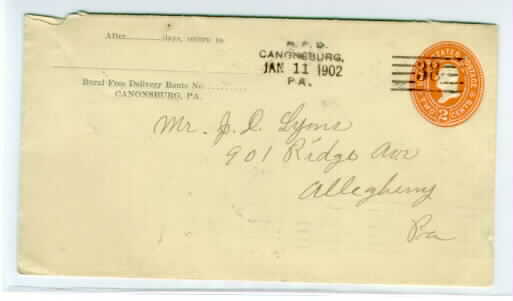 After......days, return to
Rural Free Delivery Route No.........
CANONSBURG, PA.
R. F. D.
CANONSBURG,
JAN 11 1902
PA.
38
STATES POSTAGE
TWO 2 CENTS
Mr. J. D. Lyons
901 Ridge Ave
Allegheny
Pa